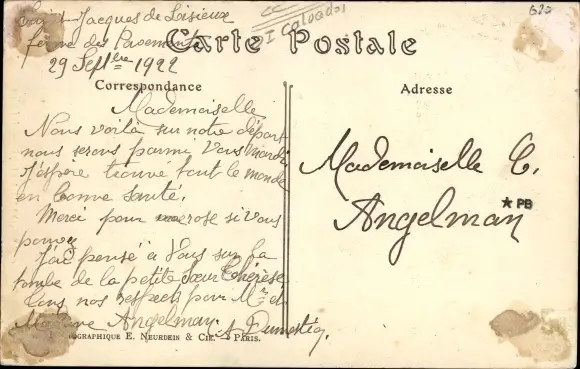 Saint Jacques de Lisieux
ferme des
29 Septbre 1922
CC
I Calvados
Carte Postale
Correspondance
Adresse
Mademoiselle
Nous voilà sur notre départ
nous serons parmi Vous mardi
J'espère trouvé tout le monde
en bonne santé.
Merci pour rose si Vous
J'ai pensé à Vous sur la
tombe de la petite sœur Thérèse
Tous nos respects pour Mr et
Madame Angelman.
Mademoiselle C.
Angelman
*PB
OGRAPHIQUE E. NEURDEIN & CIE. - PARIS.